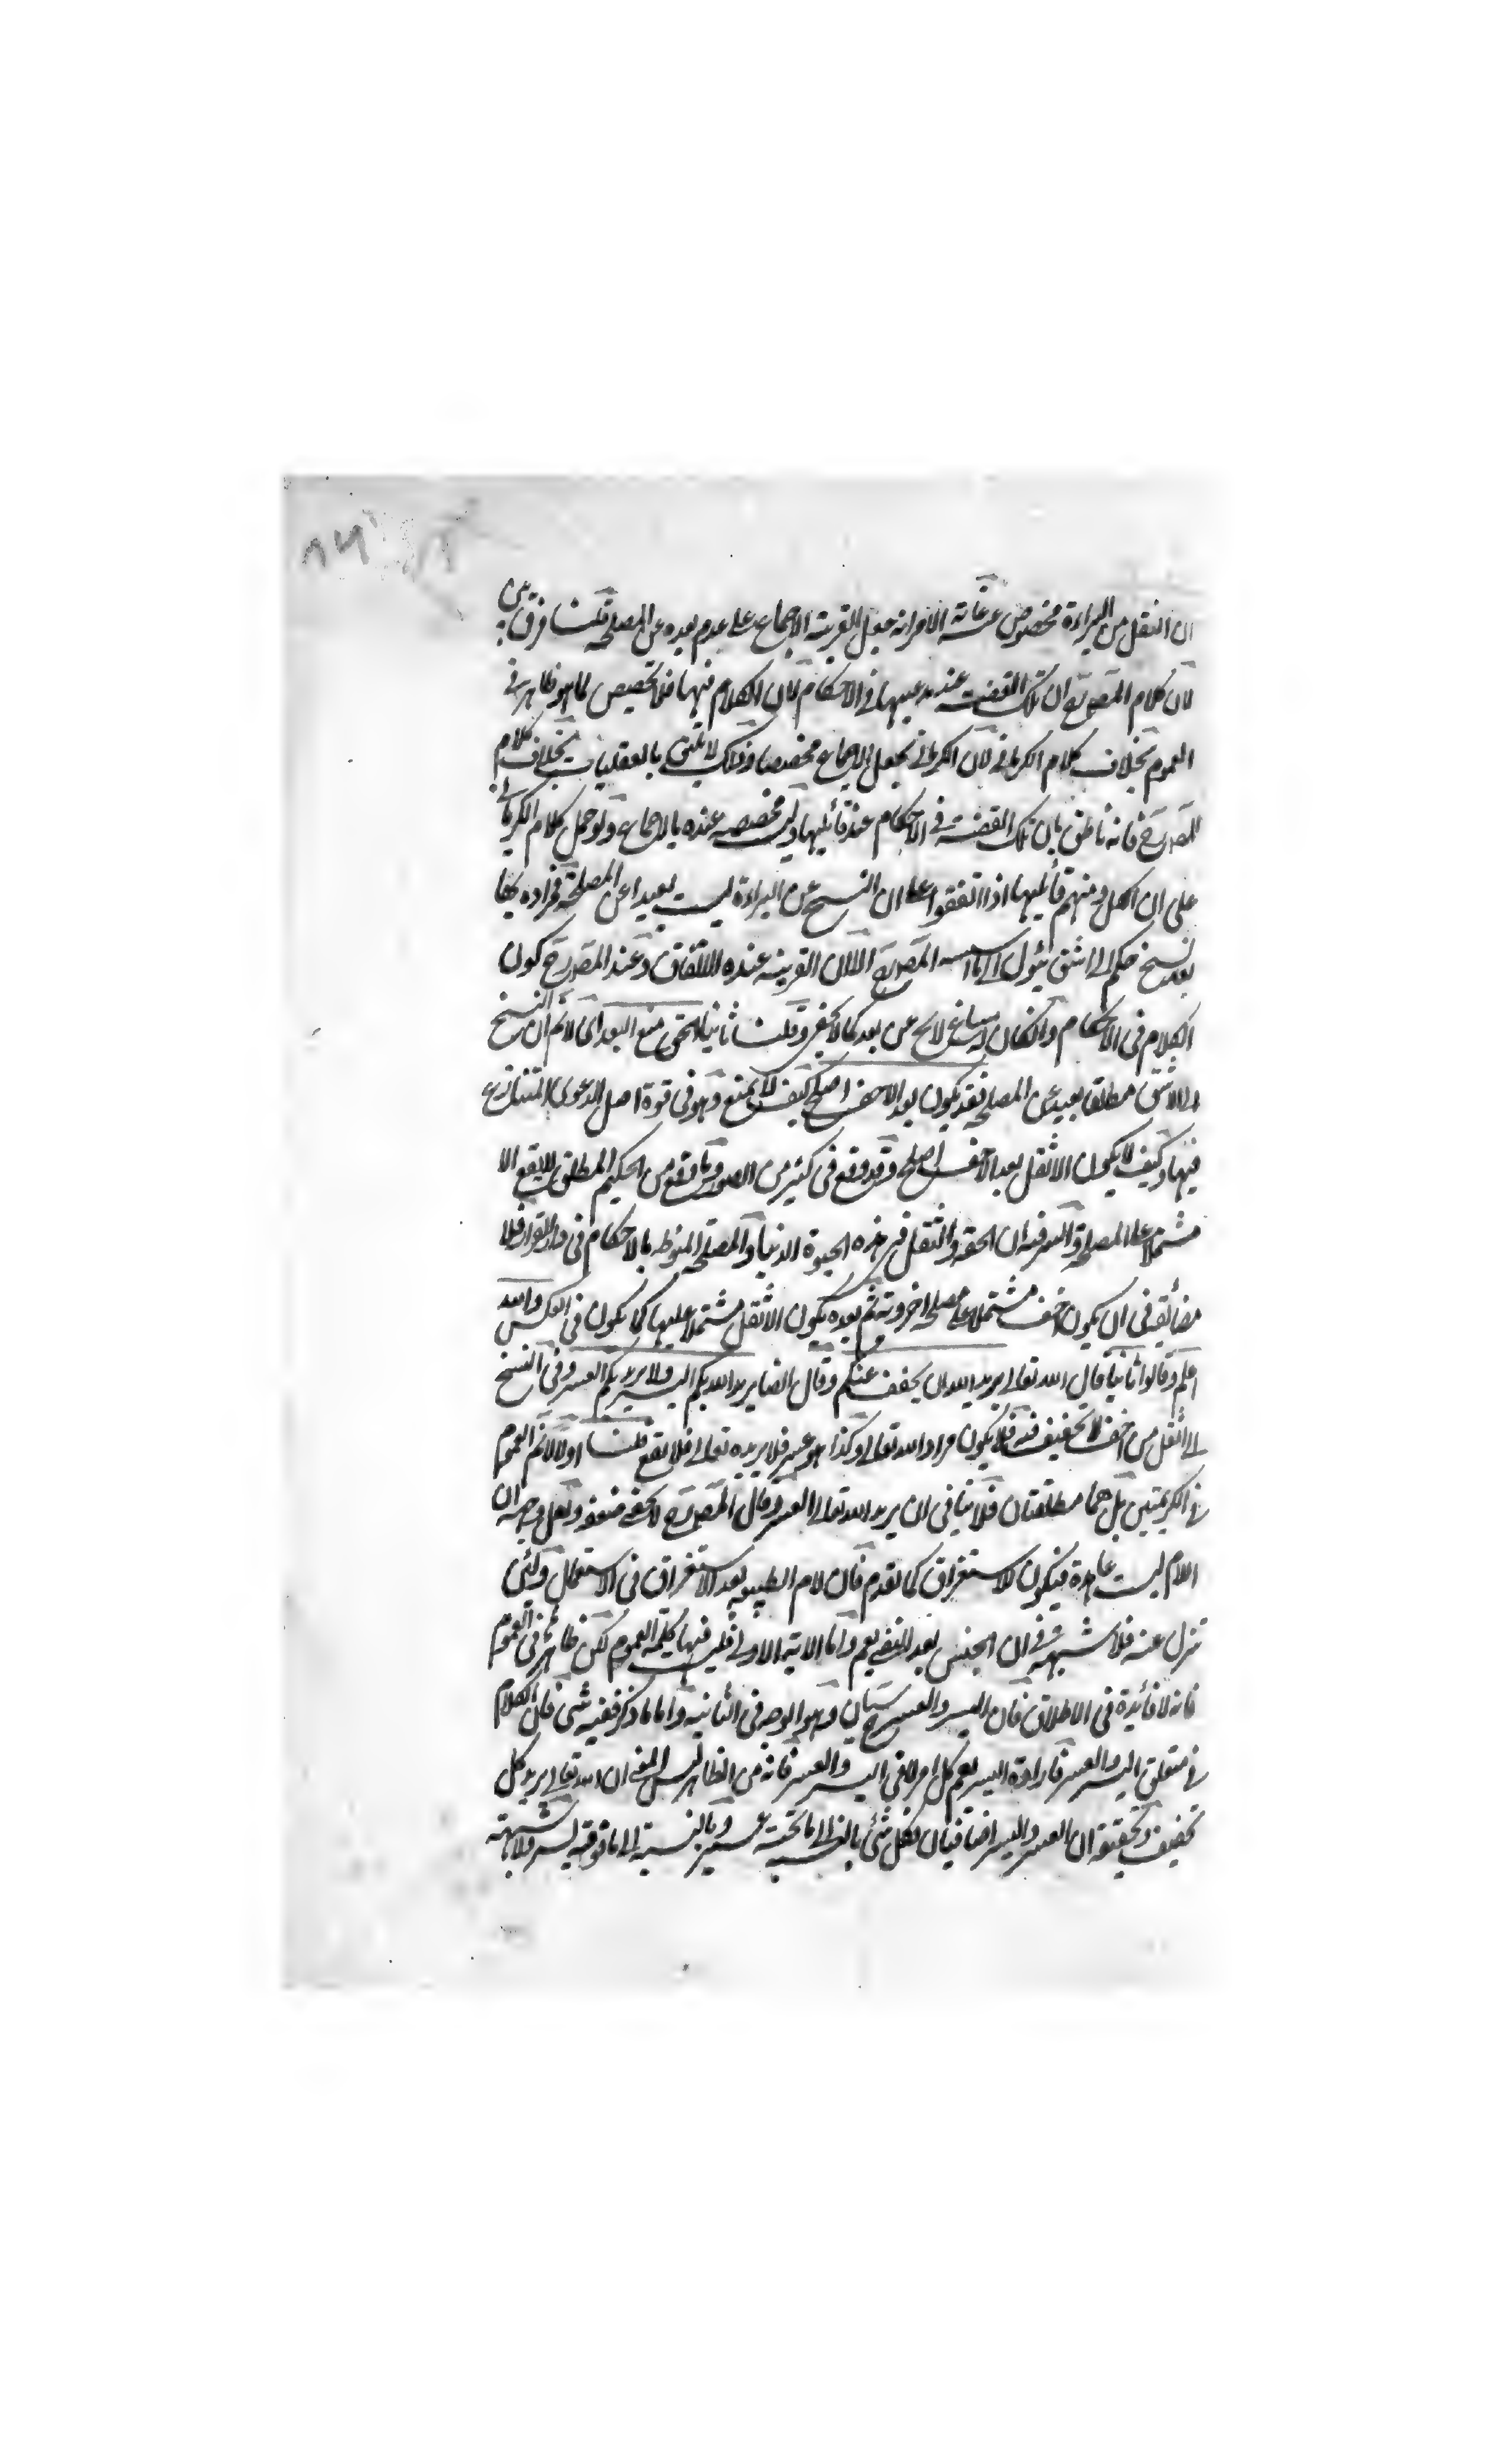 ان النقل من البراءة مخصوص عنه غاية الامر انه جعل القرينة الاجماع على عدم بعده عن المصلحة قلنا فرق بين
لان كلام المصنف رح ان تلك القضية عند مدعيها في الاحكام لان الكلام فيها فلا تخصيص لما هو ظاهر في
العموم بخلاف كلام الكرماني لان الكرماني يجعل الاجماع مخصصا وذلك لا يليق بالعقليات بخلاف كلام
المصنف رح فانه ناطق بان تلك القضية في الاحكام عند قائليها وليست مخصصة عنده بالاجماع ولو حمل كلام الكرماني
على ان الكل ومنهم قائليها اذا اتفقوا على ان النسخ عن البراءة ليست بعيدا عن المصلحة فمراده
نسخ حكم الى اشق يئول الى ما اسسه المصنف رح الا ان القرينة عنده الاتفاق وعند المصنف رح كون
الكلام في الاحكام وان كان له مساغ لائح عن بعد كما لا يخفى وقلنا ثانيا التحقق منع البعد اى لا نم ان النسخ
الى الاشق مطلقا بعيد عن المصلحة فقد يكون بعد الاخف اصلح كيف لا يمنع وهو في قوة اصل الدعوى المتنازع
فيها وكيف لا يكون الاثقل بعد الاخف اصلح وقد وقع في كثير من الصور وما وقع من الحكيم المطلق لا يقع الا
مشتملا على المصلحة والسر فيه ان الخفة والثقل في هذه الحيوة الدنيا والمصلحة المنوطة بالاحكام في دار القرار فلا
مضائقة في ان يكون اخف مشتملا على مصلحة اخروية ثم بعده يكون الاثقل مشتملا عليها كما يكون في العكس والله
اعلم وقالوا ثانيا قال الله تعالى يريد الله ان يخفف عنكم وقال ايضا يريد الله بكم اليسر ولا يريد بكم العسر وفي النسخ
الى اثقل من اخف لا تخفيف فيه فلا يكون مراد الله تعالى وكذا هو عسر فلا يريده تعالى فلا يقع قلنا اولا لا نم العموم
في الكريمتين بل هما مطلقتان فلا ينافي ان يريد الله تعالى العسر وقال المصنف رح لا يخفى ضعفه ولعل وجهه ان
اللام ليست عاهدة فيكون للاستغراق كما تقدم فان لام الطبيعة بعد الاستغراق في الاستعمال ولئن
تنزل عنه فلا شبهة في ان الجنس بعد النفي يعم واما الاية الاولى فليست فيها كلمة العموم لكن ظاهر في العموم
فانه لا فائدة في الاطلاق فان اليسر والعسر ح سيان وهو الوجه في الثانية واما ما ذكر ففيه شئ فان الكلام
في متعلق اليسر والعسر فارادة اليسر يعم كل امر لا في اليسر والعسر فانه من الظاهر ليس المعنى ان الله تعالى يريد كل
تخفيف وتحقيقه ان العسر واليسر اضافيان فكل شئ بالنسبة الى ما تحته عسر وبالنسبة الى ما فوقه يسر ولا شبهة